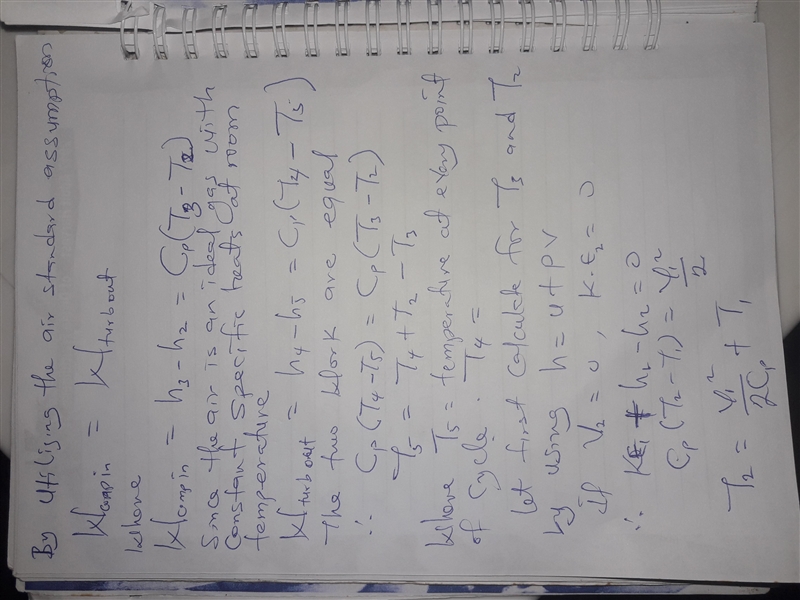 By utilising the air standard assumption
Wcompin = Wturbout
Where
Wcompin = h3 - h2 = Cp(T3 - T2)
Since the air is an ideal gas with
Constant specific heats at room
temperature
Wturbout = h4 - h5 = Cp(T4 - T5)
The two work are equal
∴ Cp(T4 - T5) = Cp(T3 - T2)
T5 = T4 + T2 - T3
Where T5 = temperature at every point
of cycle. T4 =
Let first calculate for T3 and T2
by using h = u + pv
if V2 = 0, K.E2 = 0
∴ KE1 + h1 - h2 = 0
Cp(T2 - T1) = V1²/2
T2 = V1²/2Cp + T1